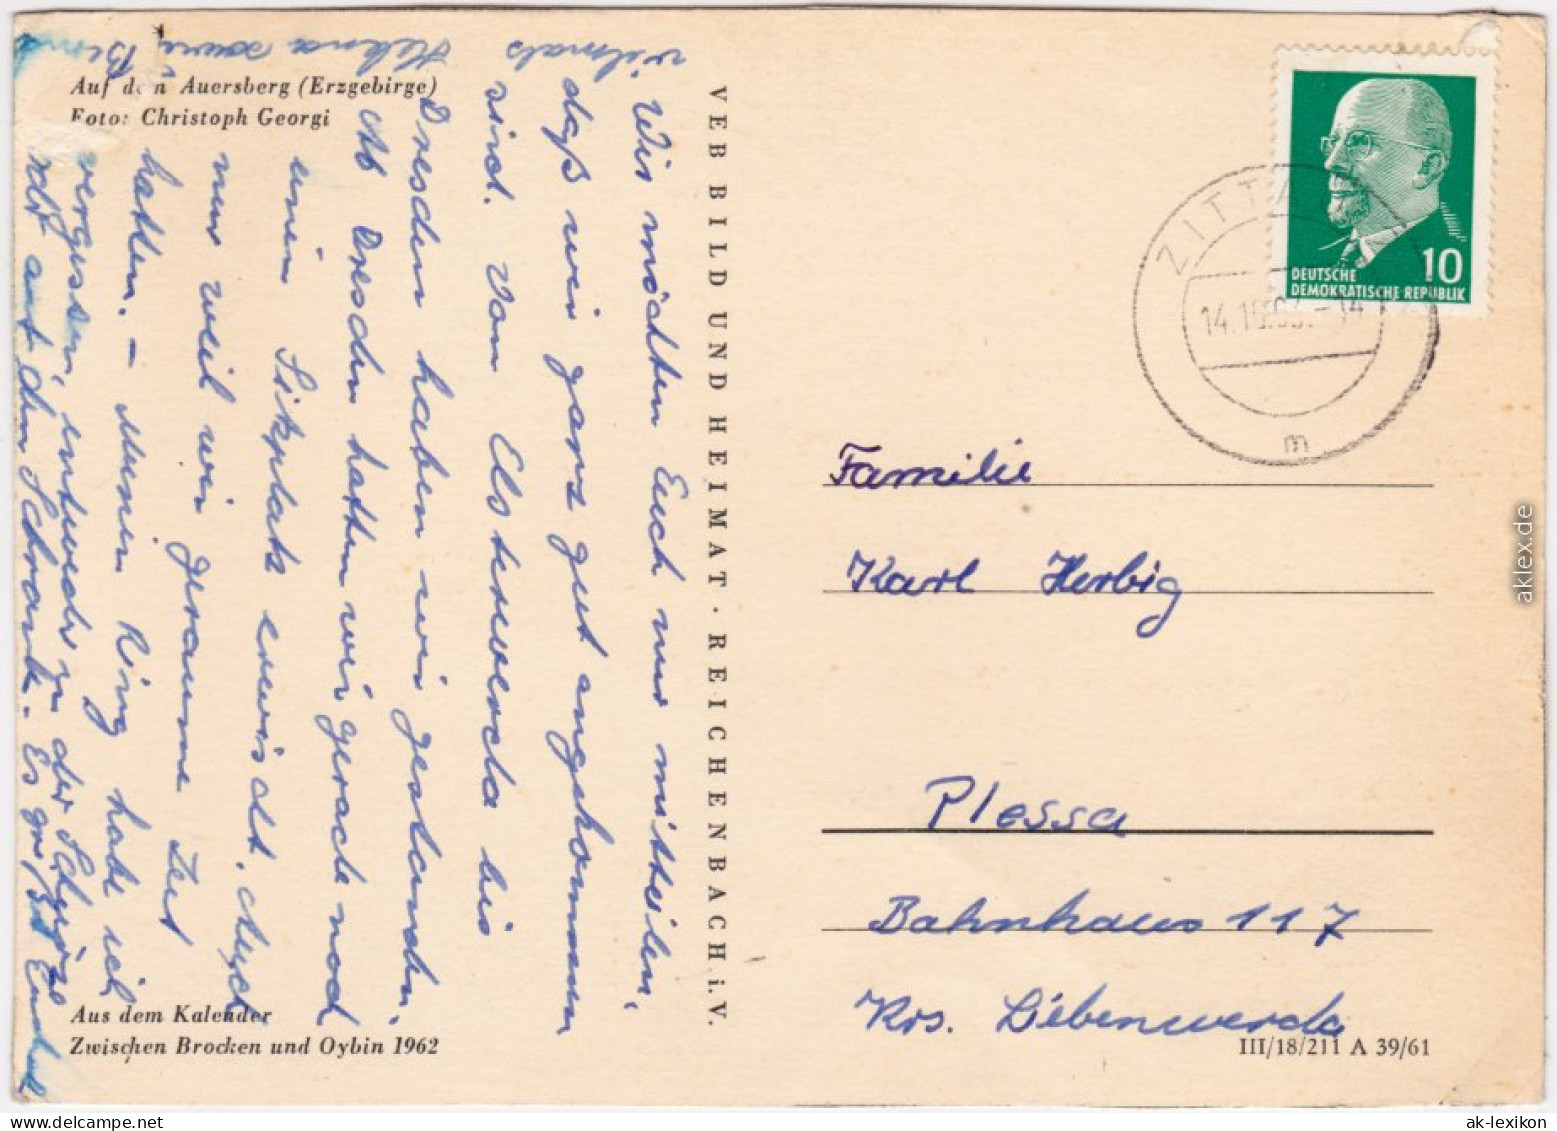 Auf dem Auersberg (Erzgebirge)
Foto: Christoph Georgi
Wir möchten Euch nur mitteilen,
daß wir ganz gut angekommen
sind. Von Elsterwerda bis
Dresden haben wir gestanden.
Ab Dresden hatten wir gerade noch
einen Sitzplatz erwischt, auch
nur weil wir genaume Zeit
hatten. – Meinen Ring habe ich
vergessen, entweder in der Schürze
oder auf dem Schrank. Es grüßt Euch
vielmals
Helena sowie
Bernd
Aus dem Kalender
Zwischen Brocken und Oybin 1962
VEB BILD UND HEIMAT · REICHENBACH i. V.
ZITTAU
14.10.63.-14
m
10
DEUTSCHE
DEMOKRATISCHE REPUBLIK
Familie
Karl Herbig
Plessa
Bahnhaus 117
Krs. Liebenwerda
III/18/211 A 39/61
aklex.de
ak-lexikon